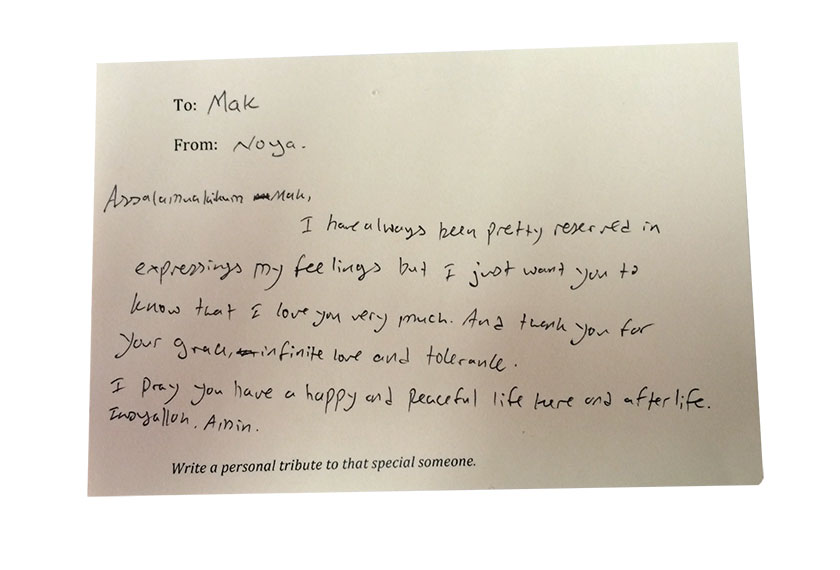 To: Mak
From: Noya.
Assalamualaikum Mak,
I have always been pretty reserved in
expressings my feelings but I just want you to
know that I love you very much. And thank you for
your grace, infinite love and tolerance.
I pray you have a happy and peaceful life here and afterlife.
Insyallah. Amin.
Write a personal tribute to that special someone.